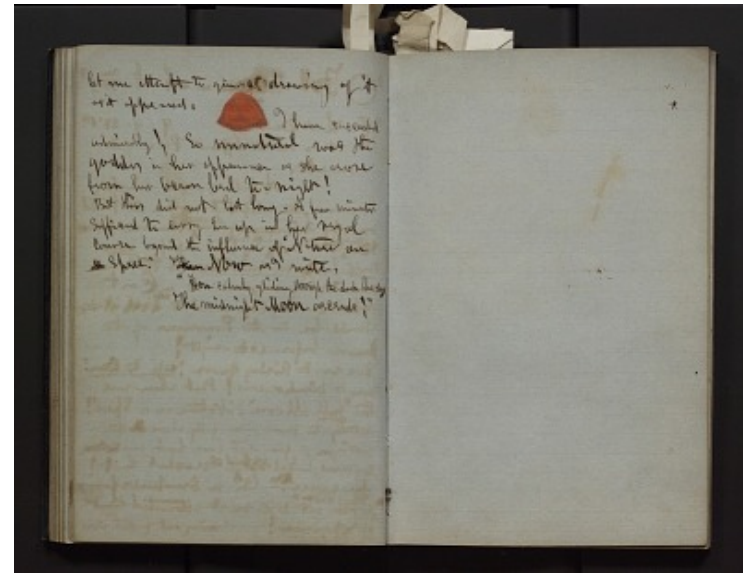 let me attempt to give a drawing of it
as it appeared.
I have succeeded
admirably! So unnatural was the
goddess in her appearance as she arose
from her ocean bed to-night!
But this did not last long. A few minutes
sufficed to carry her up in her regal
course beyond the influence of "Nature on
a Spree." Now as I write,
"How calmly gliding through the dark blue sky
The midnight Moon ascends!"